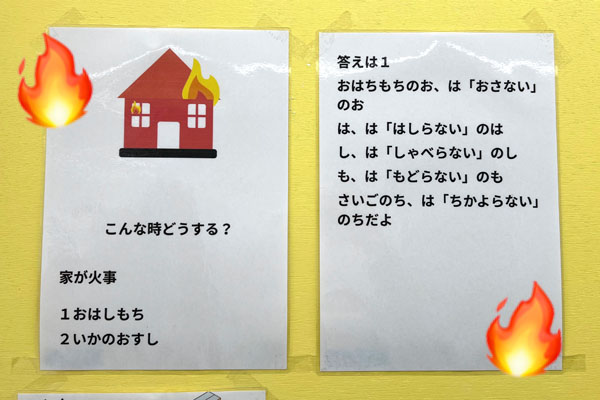 こんな時どうする？
家が火事
１おはしもち
２いかのおすし
答えは１
おはちもちのお、は「おさない」
のお
は、は「はしらない」のは
し、は「しゃべらない」のし
も、は「もどらない」のも
さいごのち、は「ちかよらない」
のちだよ